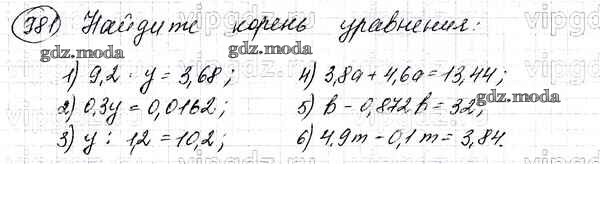 381) Найдите корень уравнения:
gdz.moda
gdz.moda
1) 9,2 · y = 3,68; 4) 3,8a + 4,6a = 13,44;
2) 0,3y = 0,0162; 5) b - 0,872b = 32;
gdz.moda
3) y : 1,2 = 10,2; 6) 4,9m - 0,1m = 3,84.
vipgdz